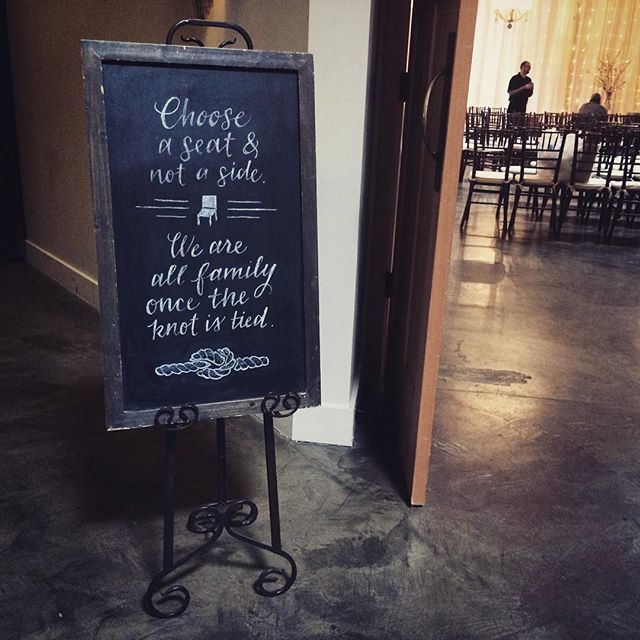 Choose
a seat &
not a side.
We are
all family
once the
knot is tied.